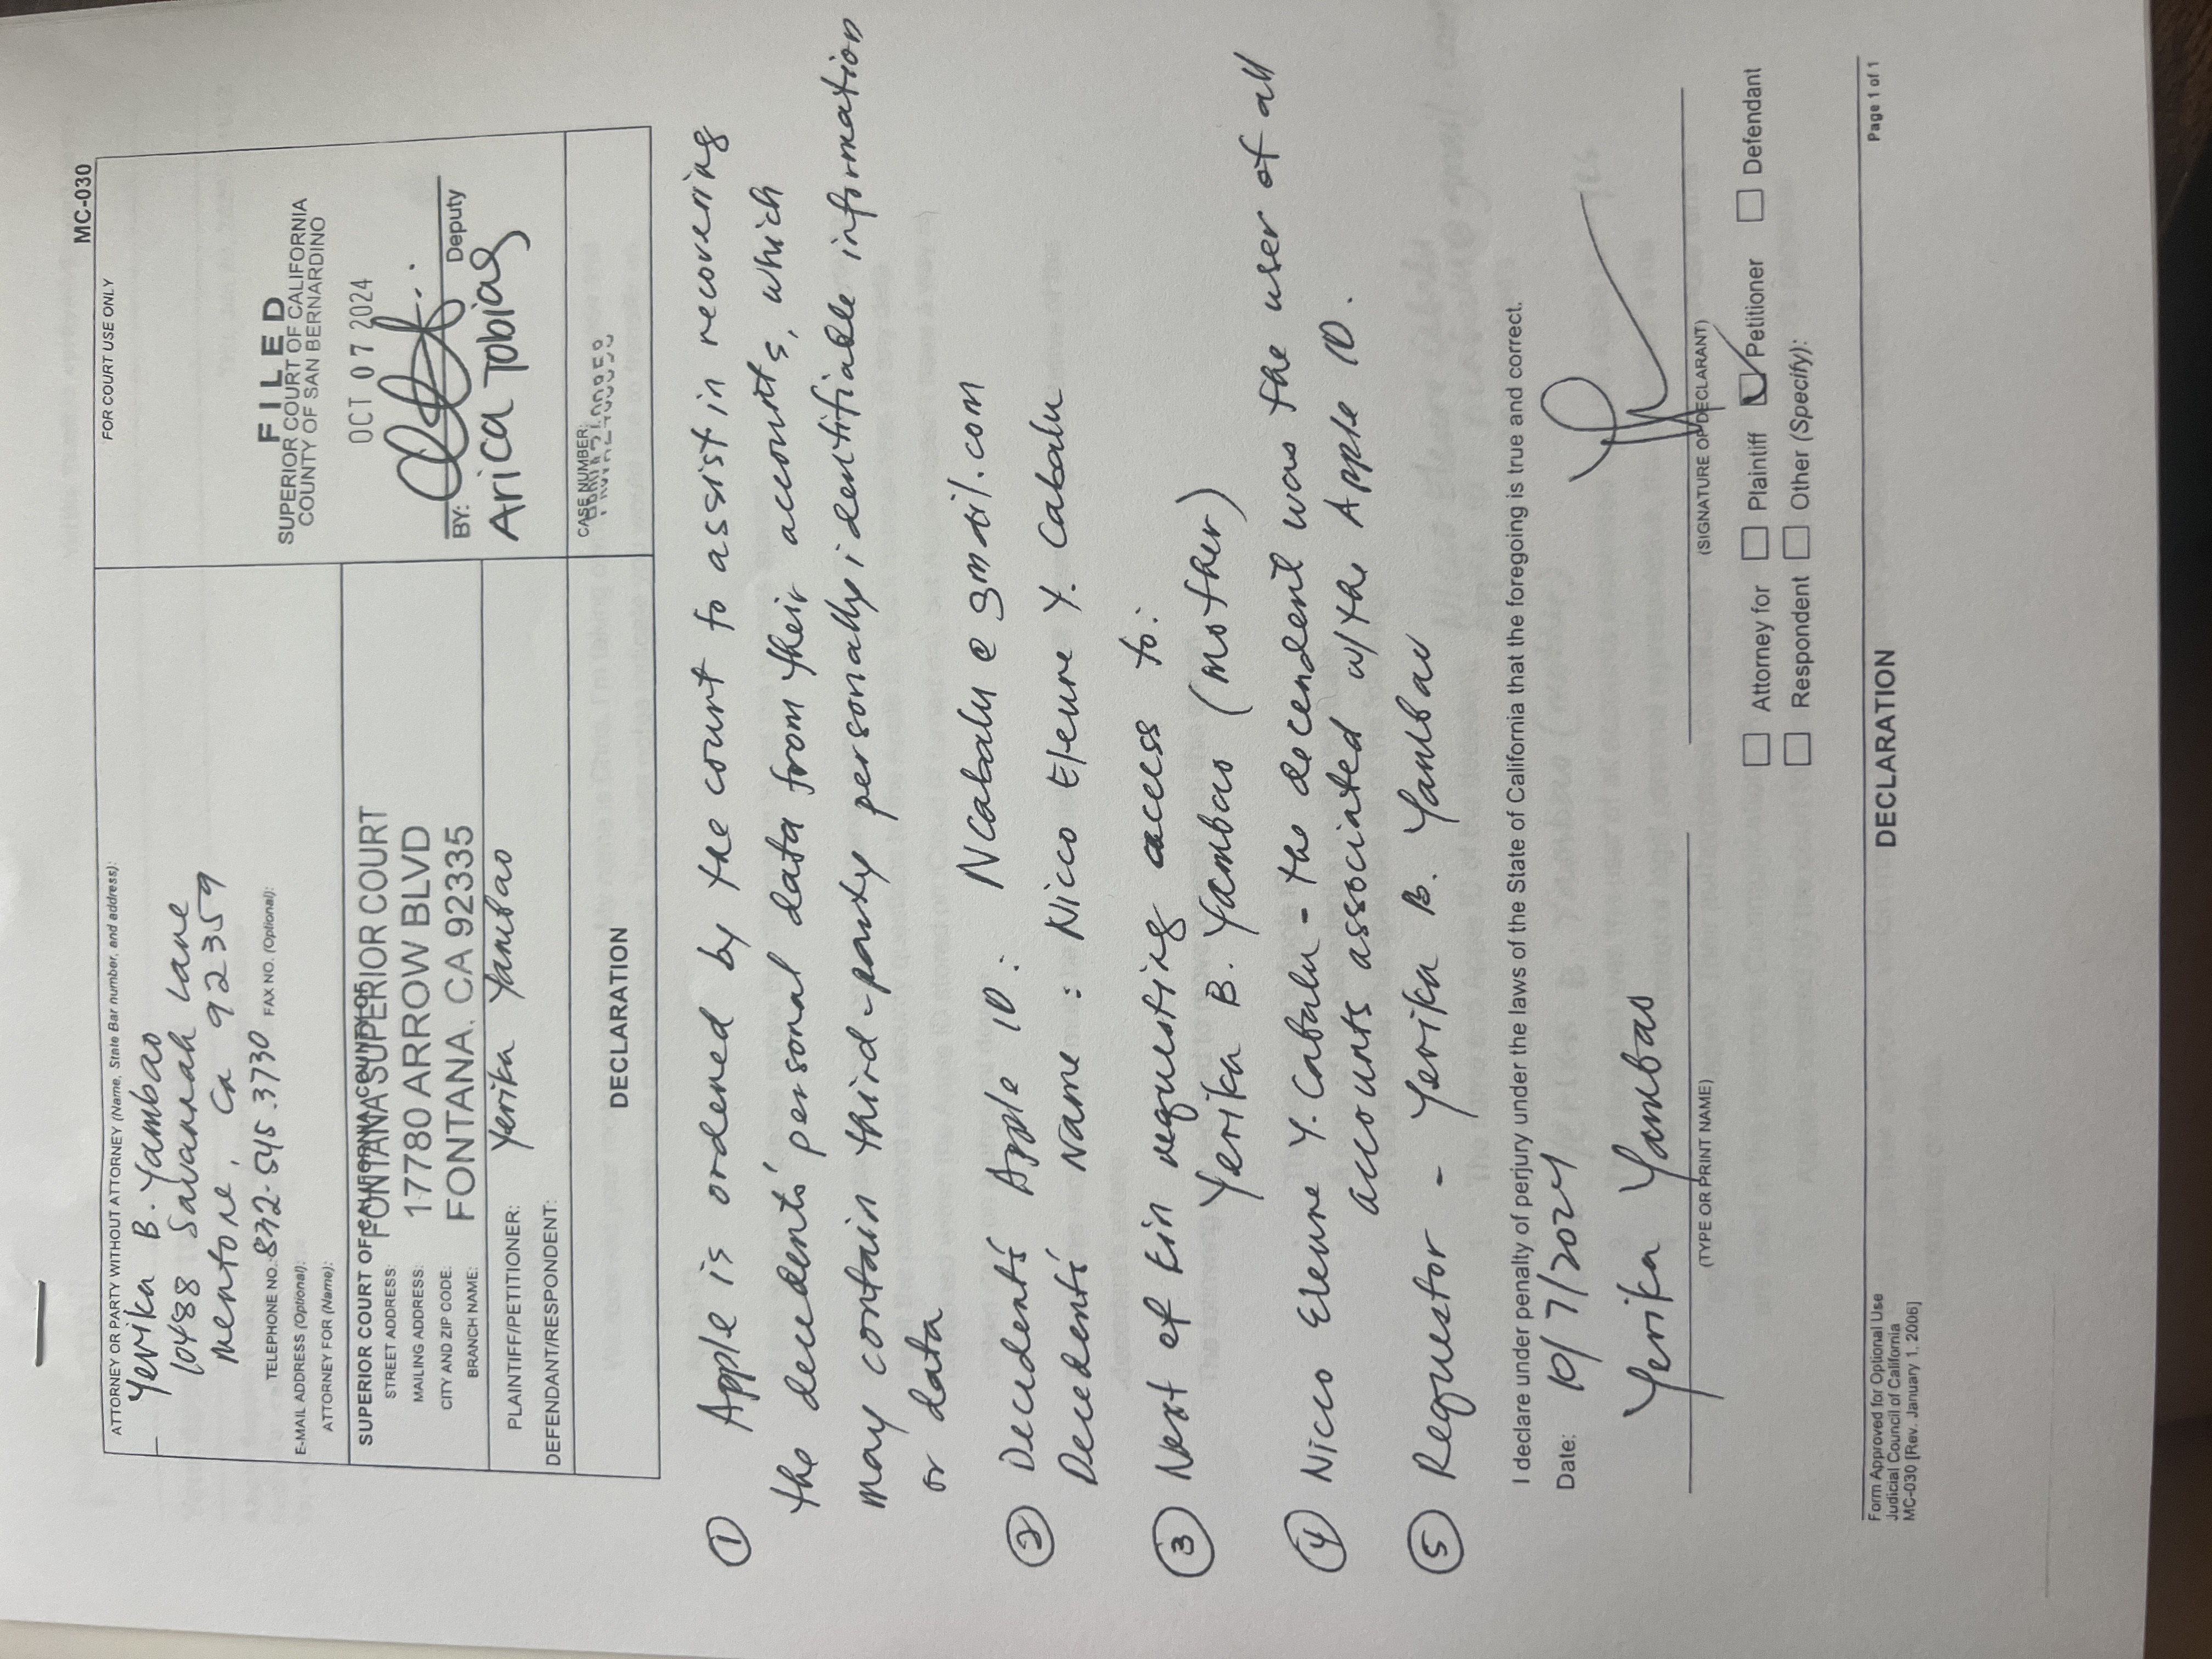 MC-030
ATTORNEY OR PARTY WITHOUT ATTORNEY (Name, State Bar number, and address):
Yerika B. Yambao
10488 Savannah Lane
Mentone, Ca 92359
TELEPHONE NO.: 832-545.3730 FAX NO. (Optional):
E-MAIL ADDRESS (Optional):
ATTORNEY FOR (Name):
FOR COURT USE ONLY
FILED
SUPERIOR COURT OF CALIFORNIA
COUNTY OF SAN BERNARDINO
OCT 07 2024
BY:
Deputy
Arica Tobias
SUPERIOR COURT OF CALIFORNIA, COUNTY OF
FONTANA SUPERIOR COURT
STREET ADDRESS:
MAILING ADDRESS: 17780 ARROW BLVD
CITY AND ZIP CODE: FONTANA, CA 92335
BRANCH NAME:
PLAINTIFF/PETITIONER: Yerika Yambao
DEFENDANT/RESPONDENT:
DECLARATION
CASE NUMBER:
① Apple is ordered by the court to assist in recovering
the decedents' personal data from their accounts, which
may contain third-party personally identifiable information
or data
② Decedents Apple ID: Ncabalu@gmail.com
Decedents Name: Nicco Eleune Y. Cabalu
③ Next of kin requesting access to:
Yerika B. Yambao (mother)
④ Nicco Eleune Y. Cabalu - the decendent was the user of all
accounts associated w/the Apple ID.
⑤ Requestor - Yerika B. Yambao
I declare under penalty of perjury under the laws of the State of California that the foregoing is true and correct.
Date: 10/7/2024
Yerika Yambao
(TYPE OR PRINT NAME)
(SIGNATURE OF DECLARANT)
Attorney for Plaintiff Petitioner Defendant
Respondent Other (Specify):
Form Approved for Optional Use
Judicial Council of California
MC-030 [Rev. January 1, 2006]
DECLARATION
Page 1 of 1